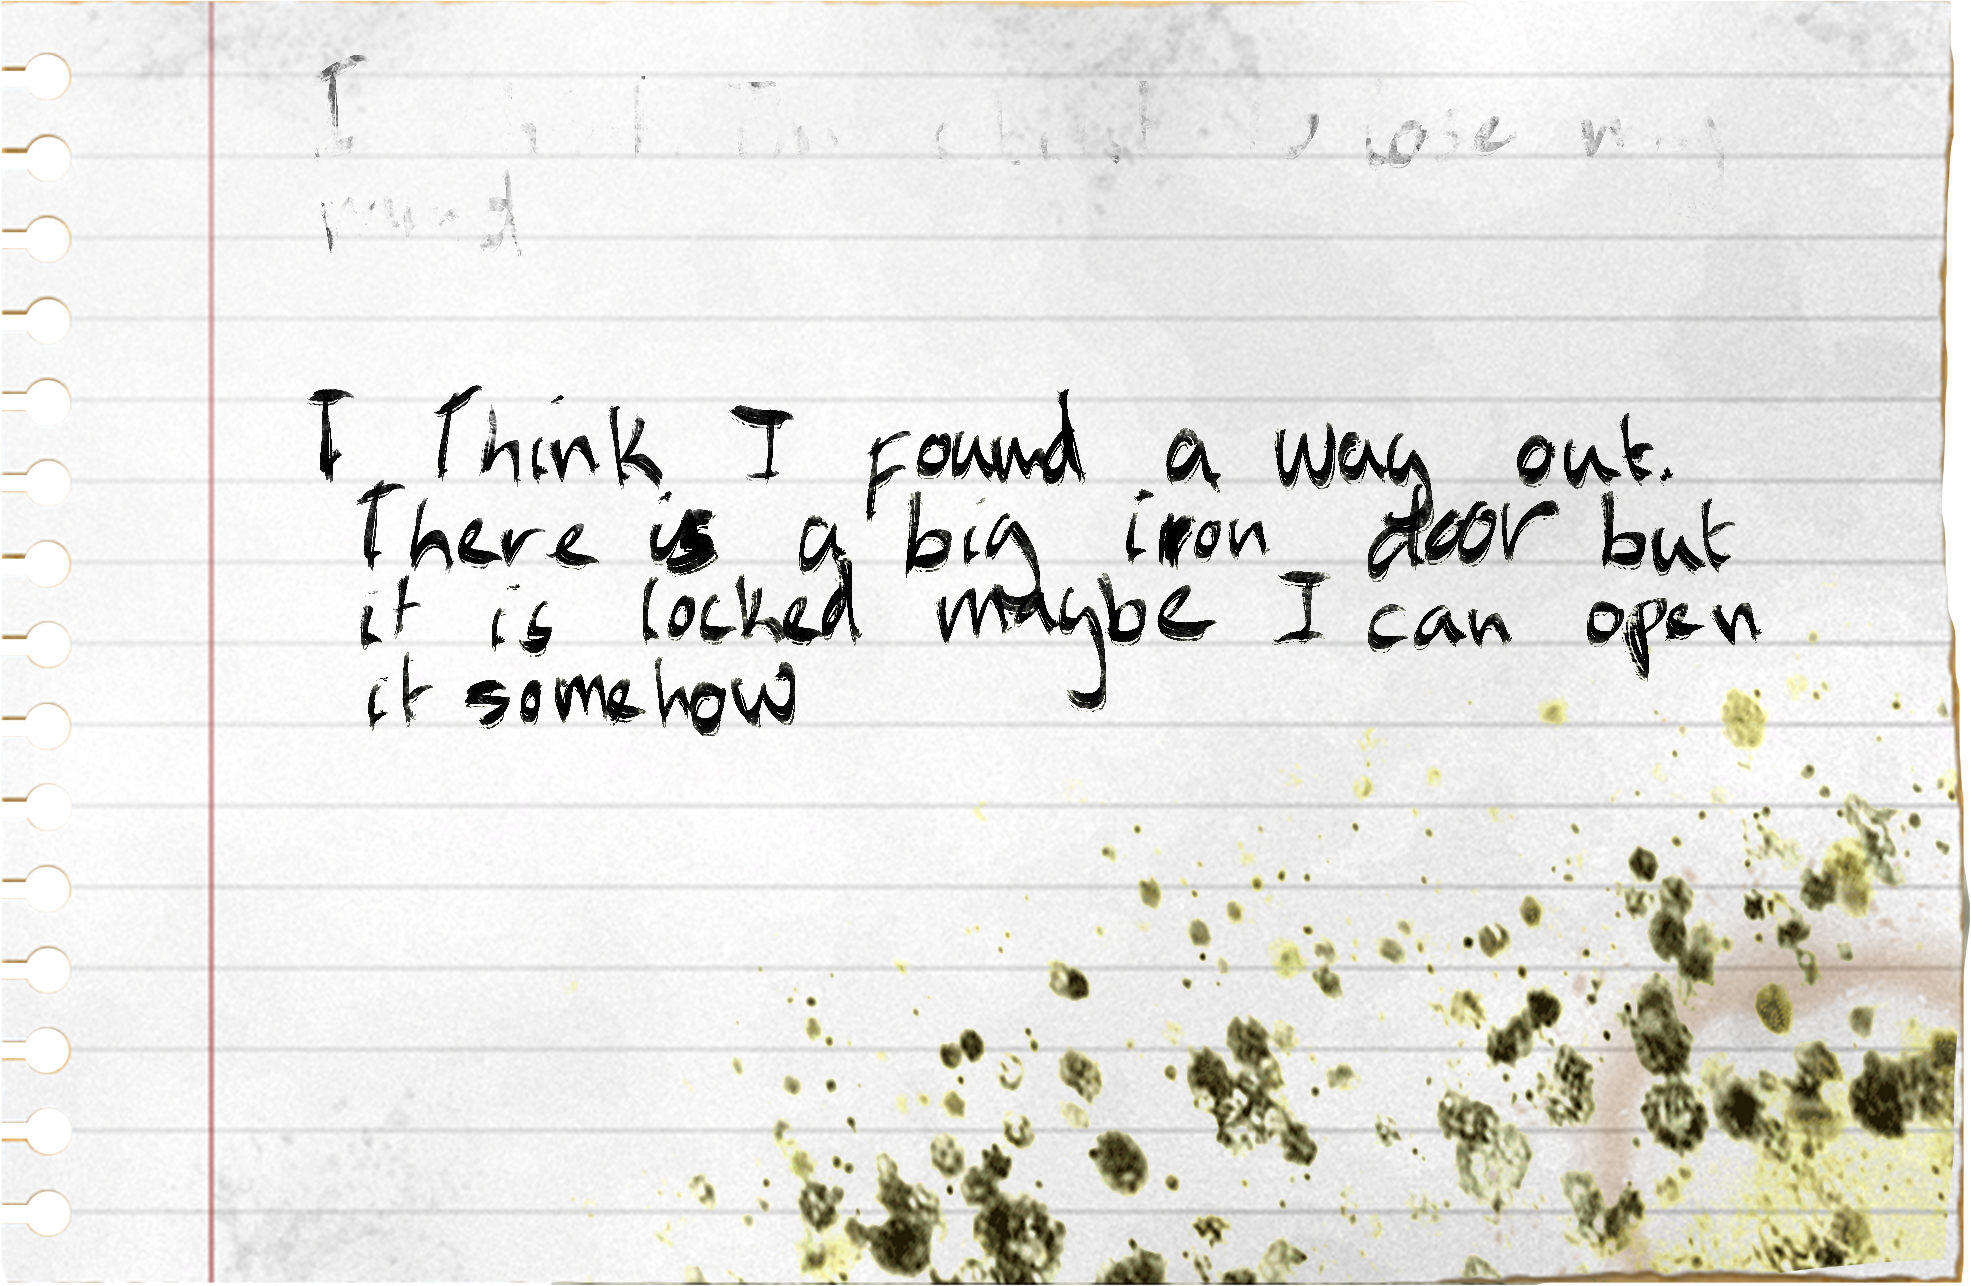 I
mind
I Think I found a way out.
There is a big iron door but
it is locked maybe I can open
it somehow